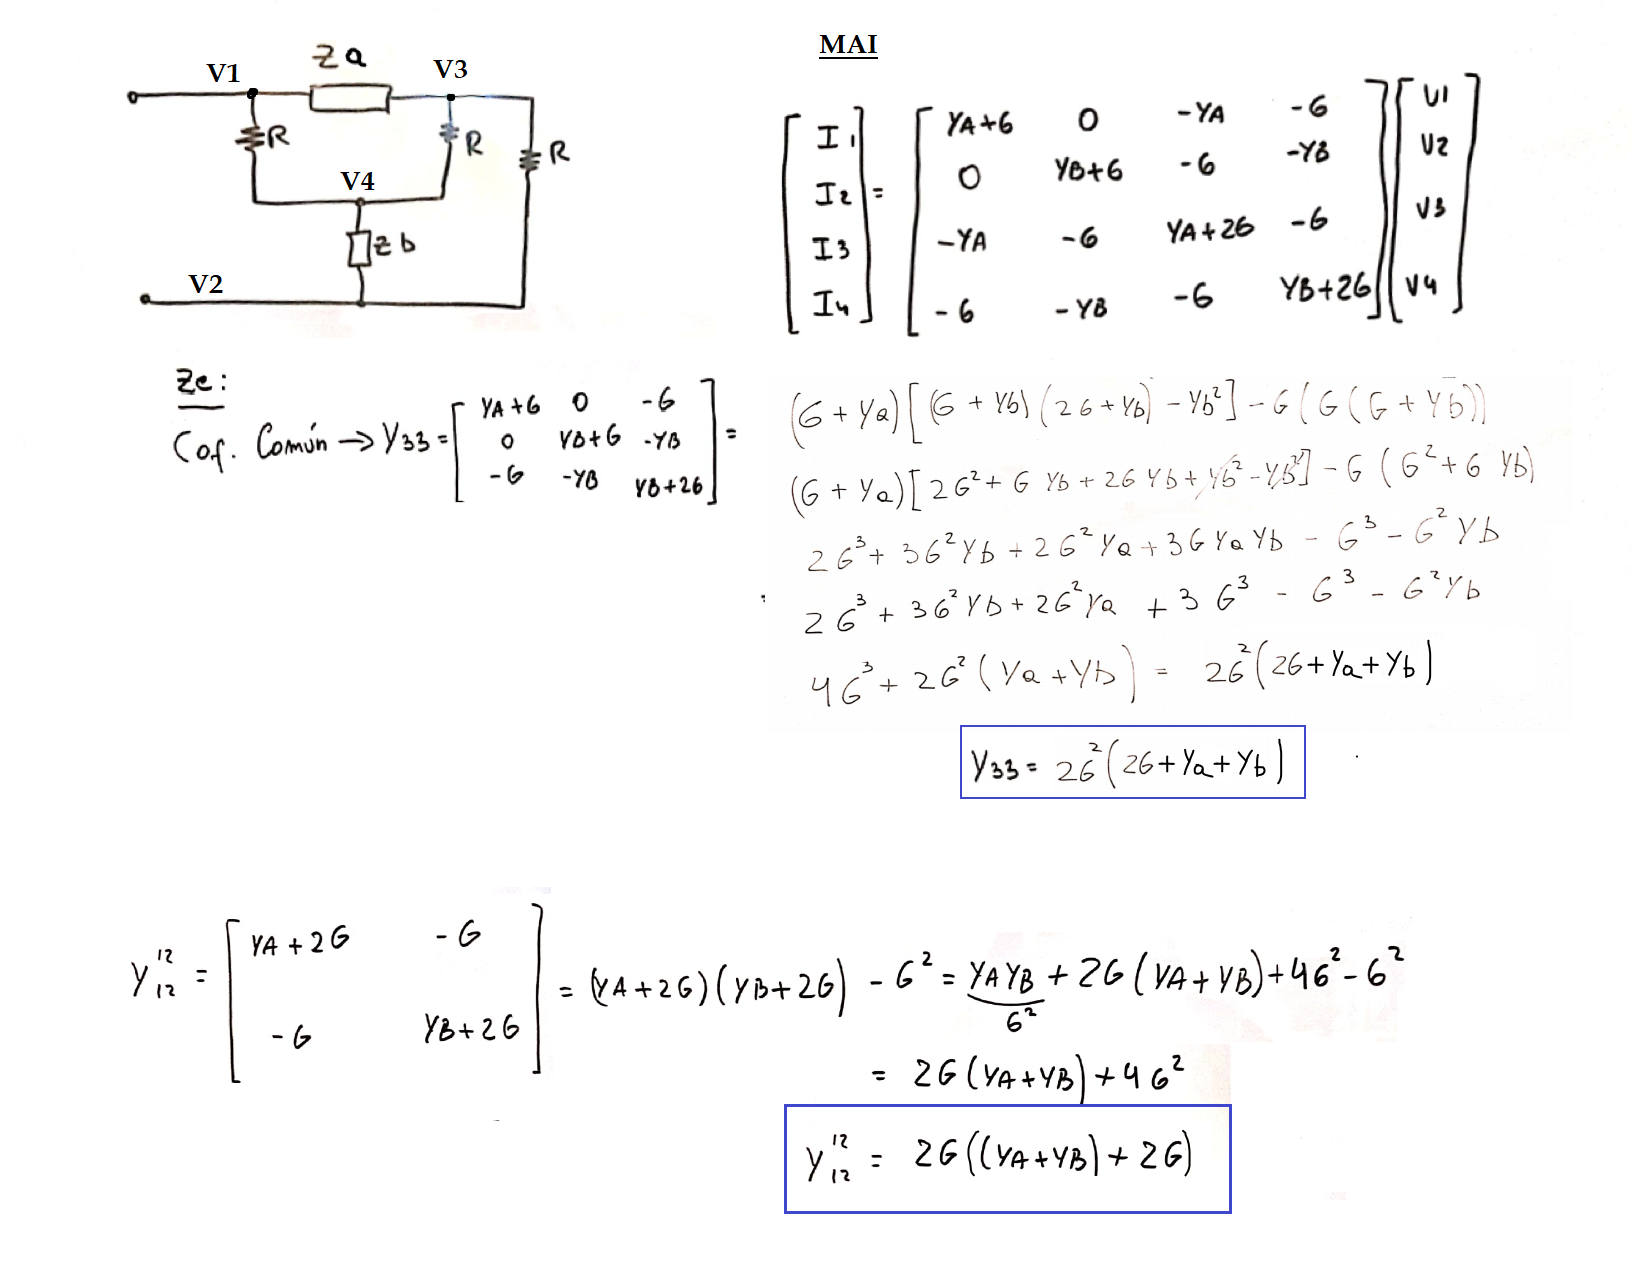 MAI
V1
Za
V3
R
R
R
V4
Zb
V2
[ I1 ] = [ YA+G 0 -YA -G ] [ V1 ]
[ I2 ] [ 0 YB+G -G -YB ] [ V2 ]
[ I3 ] [ -YA -G YA+2G -G ] [ V3 ]
[ I4 ] [ -G -YB -G YB+2G ] [ V4 ]
Ze:
Cof. Común → Y33 = [ YA+G 0 -G ] =
[ 0 YB+G -YB ]
[ -G -YB YB+2G ]
(G + Ya)[(G + Yb)(2G + Yb) - Yb²] - G(G(G + Yb))
(G + Ya)[2G² + G Yb + 2G Yb + Yb² - Yb²] - G(G² + G Yb)
2G³ + 3G²Yb + 2G²Ya + 3G Ya Yb - G³ - G²Yb
2G³ + 3G²Yb + 2G²Ya + 3G³ - G³ - G²Yb
4G³ + 2G²(Ya + Yb) = 2G²(2G + Ya + Yb)
Y33 = 2G²(2G + Ya + Yb)
Y₁₂¹² = [ YA+2G -G ] = (YA+2G)(YB+2G) - G² = YAYB + 2G(YA+YB) + 4G² - G²
[ -G YB+2G ]
G²
= 2G(YA+YB) + 4G²
Y₁₂¹² = 2G((YA+YB) + 2G)